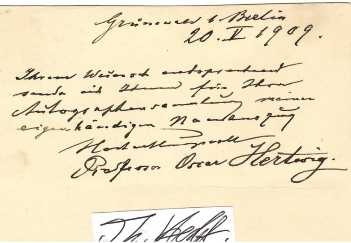 Grunewald b Berlin
20. V 1909.
Ihrem Wunsch entsprechend
sende ich Ihnen für Ihre
Autographensammlung meinen
eigenhändigen Namenszug
Hochachtungsvoll
Professor Oscar Hertwig.
Th.